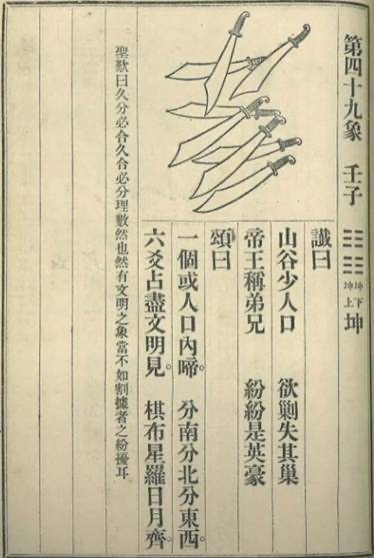 第四十九象 壬子 ☷☷ 坤下坤上 坤
讖曰
山谷少人口 欲剿失其巢
帝王稱弟兄 紛紛是英豪
頌曰
一個或人口內啼。 分南分北分東西。
六爻占盡文明見。 棋布星羅日月齊。
聖歎曰久分必合久合必分理數然也然有文明之象當不如割據者之紛擾耳